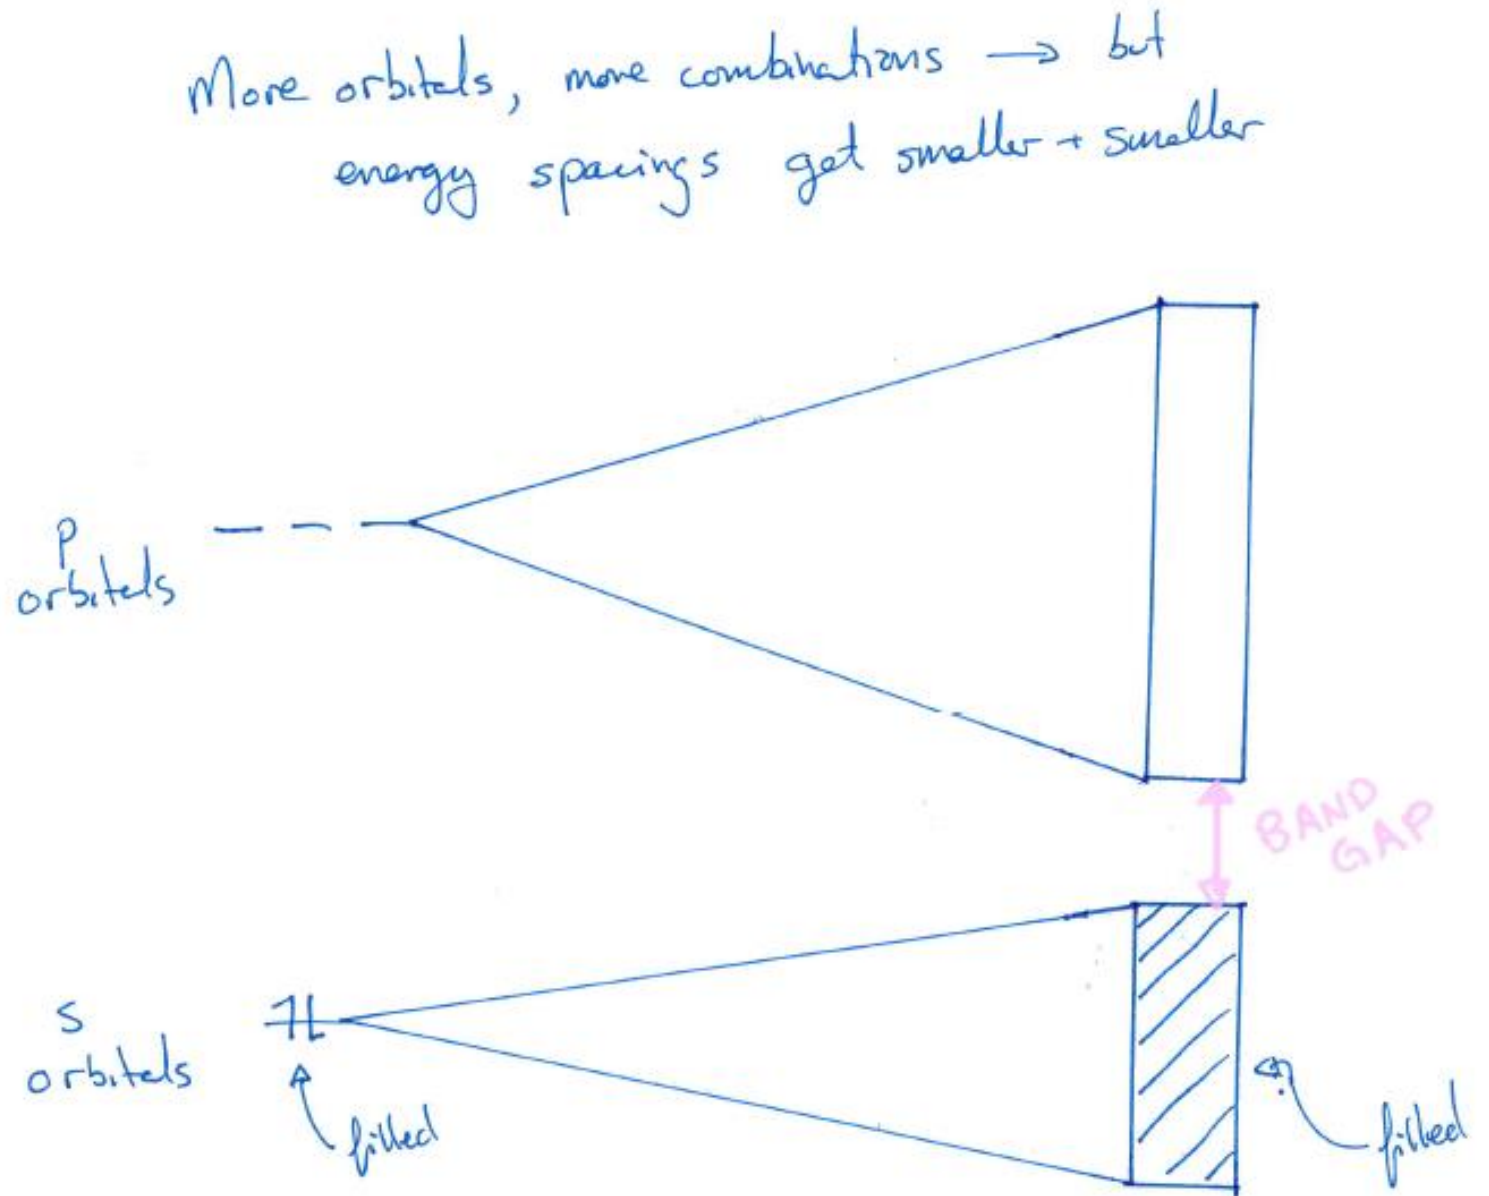 More orbitals, more combinations → but
energy spacings get smaller + smaller
p
orbitals
BAND
GAP
s
orbitals
filled
filled